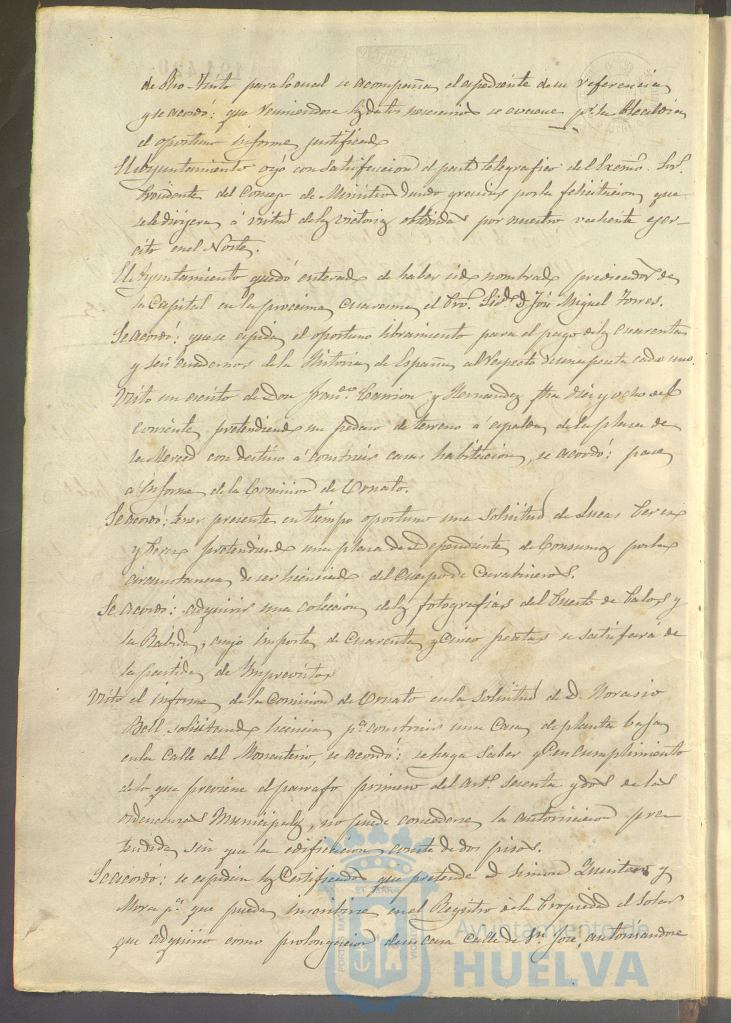 de Rio-Tinto para lo cual se acompaña el expediente de su referencia
y se acordó: que reuniendose los datos necesarios se evacue pr. la Alcaldia
el oportuno informe justificado
El Ayuntamiento oyó con satisfaccion el parte telegrafico del Excmo. Sor.
Presidente del Consejo de Ministros dando gracias por la felicitacion que
se le dirijiera á virtud de las victorias obtenidas por nuestro valiente ejer-
cito en el Norte.
El Ayuntamiento quedó enterado de haber sido nombrado predicador de
la Capital en la procsima cuaresma el Pro. Lido. D. José Miguel Torres.
Se acordó: que se espida el oportuno libramiento para el pago de los cuarenta
y seis cuadernos de la Historia de España al respecto de una peseta cada uno.
Visto un escrito de Don Franco. Carrion y Hernandez fha diez y ocho del
corriente pretendiendo un pedazo de terreno á espaldas de la plaza de
la Merced con destino á construir casas habitacion, se acordó: pase
a informe de la Comision de Ornato.
Se acordó: tener presente en tiempo oportuno una solicitud de Lucas
y pretendiendo una plaza de dependiente de Consumos por las
circunstancias de ser licenciado del Cuerpo de Carabineros.
Se acordó: adquirir una coleccion de las fotografias del Puerto de Palos y
la Rabida, cuyo importe de cuarenta y cinco pesetas se satisfará de
la partida de Imprevistos
Visto el informe de la Comision de Ornato en la solicitud de D. Horasio
Bell solicitando licencia pa. construir una casa de planta baja
en la calle del Monasterio, se acordó: se haga saber q. en cumplimiento
de lo que previene el parrafo primero del arto. sesenta y dos de las
ordenanzas Municipales, no puede concederse la autorizacion pre-
tendida sin que la edificacion conste de dos pisos.
Se acordó: se espidan los Certificados que pretende D. Simon Quintero y
Mora pa. que pueda inscribirse en el Registro de la Propiedad el Solar
que adquirio como prolongacion de su casa calle de Sn. José autorizandose
Ayuntamiento de
HUELVA